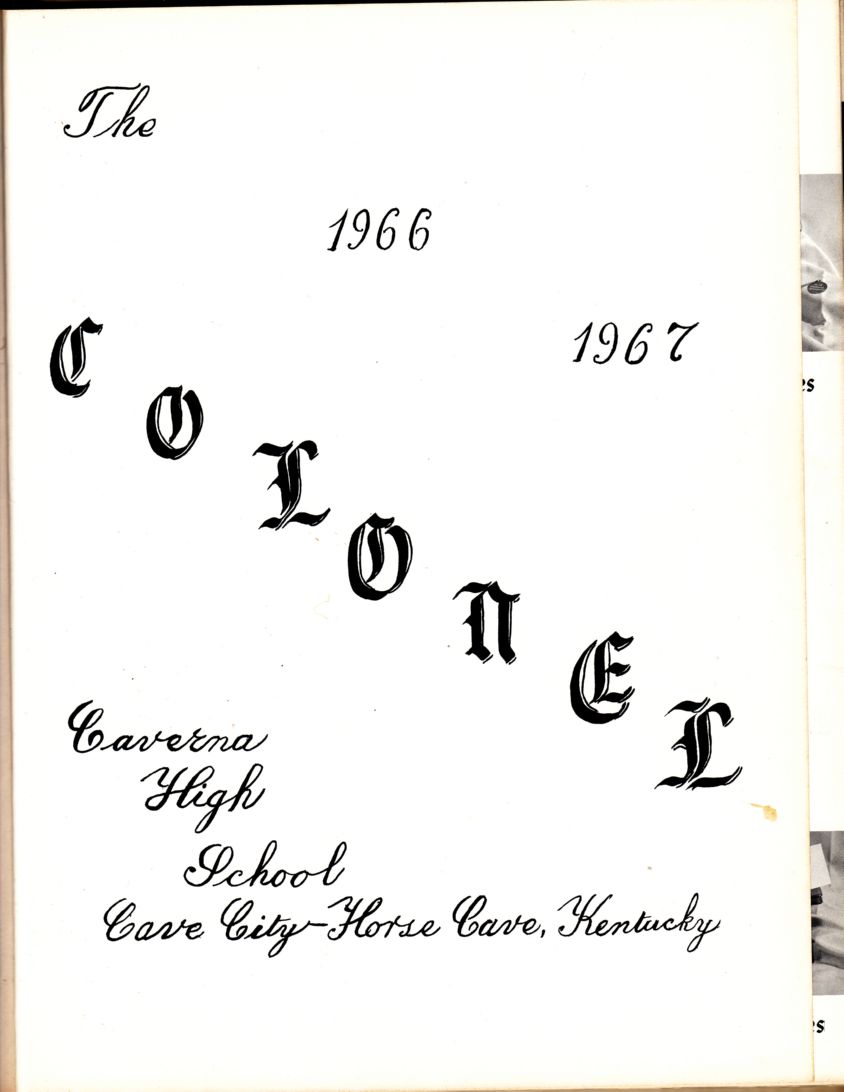 The
1966
1967
COLONEL
Caverna
High
School
Cave City-Horse Cave, Kentucky